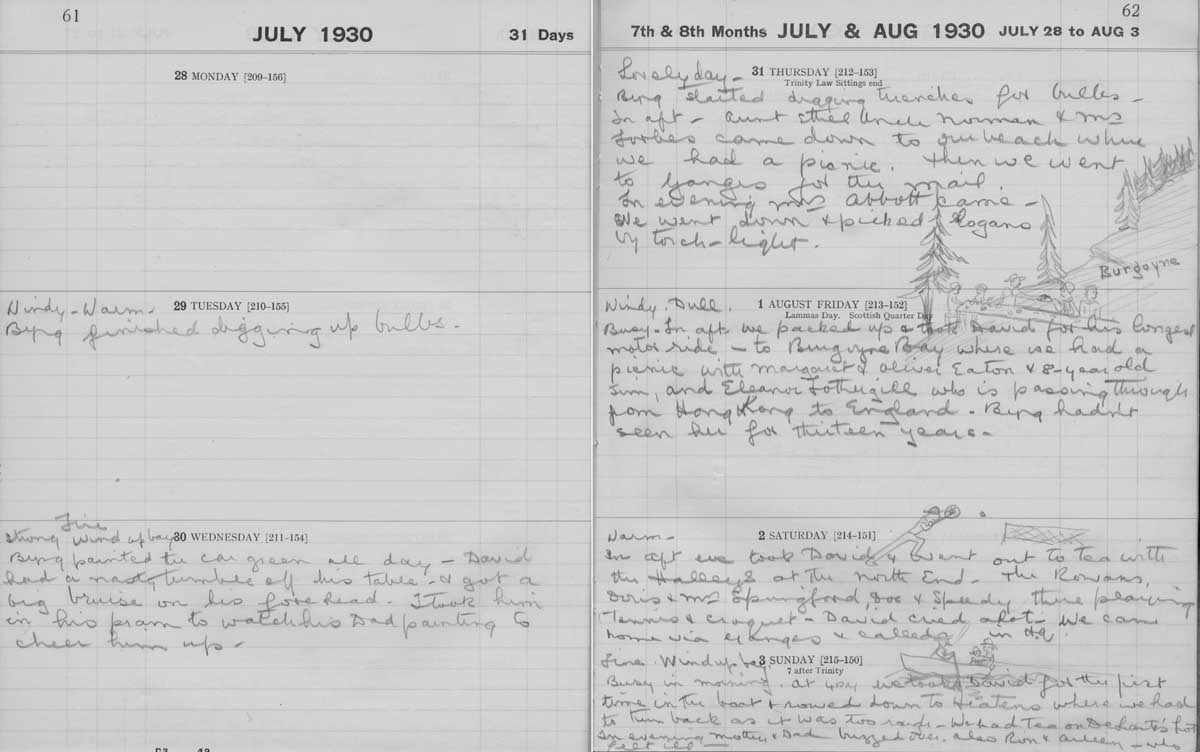 61
JULY 1930
31 Days
28 MONDAY [209–156]
29 TUESDAY [210–155]
Windy - Warm -
Byng finished digging up bulbs.
30 WEDNESDAY [211–154]
Fine
Strong wind up bay
Byng painted the car green all day - David
had a nasty tumble off his table - & got a
big bruise on his forehead. I took him
in his pram to watch his Dad painting to
cheer him up -
62
7th & 8th Months JULY & AUG 1930 JULY 28 to AUG 3
31 THURSDAY [212–153]
Trinity Law Sittings end
Lovely day -
Byng started digging trenches for bulbs -
In aft - Aunt Ethel Uncle Norman & Mrs
Forbes came down to our beach where
we had a picnic. Then we went
to Ganges for the mail.
In evening Mrs Abbott came -
We went down & picked logans
by torch-light.
Burgoyne
1 AUGUST FRIDAY [213–152]
Lammas Day. Scottish Quarter Day
Windy. Dull.
Busy - In aft we packed up & took David for his longest
motor ride - to Burgoyne Bay where we had a
picnic with Margaret & Oliver Eaton & 8-year old
Jim, and Eleanor Fothergill who is passing through
from Hong Kong to England - Byng hadn't
seen her for thirteen years -
2 SATURDAY [214–151]
Warm -
In aft we took David & went out to tea with
the Halleys at the North End - The Rowans,
Doris & Mrs Springford, Doc & Speedy there playing
Tennis & croquet - David cried a lot - we came
home via Ganges & called in
3 SUNDAY [215–150]
7 after Trinity
Fine Wind up bay
Busy in morning. At 4 pm we took David for the first
time in the boat & rowed down to where we had
to turn back as it was too rough - We had tea on
In evening Mother & Dad buzzed over. also Ron & - who
felt ill -